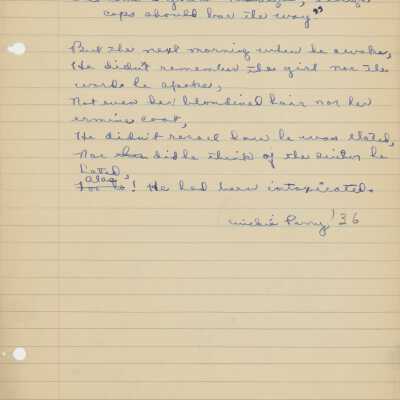 cops should bar the way"
But the next morning when he awoke,
He didn't remember the girl nor the
words he spoke,
Not even her blondined hair nor her
ermine coat,
He didn't recall how he was elated,
Nor did he think of the he
hated,
alas
Too So! He had been intoxicated.
Mickie Perry '36